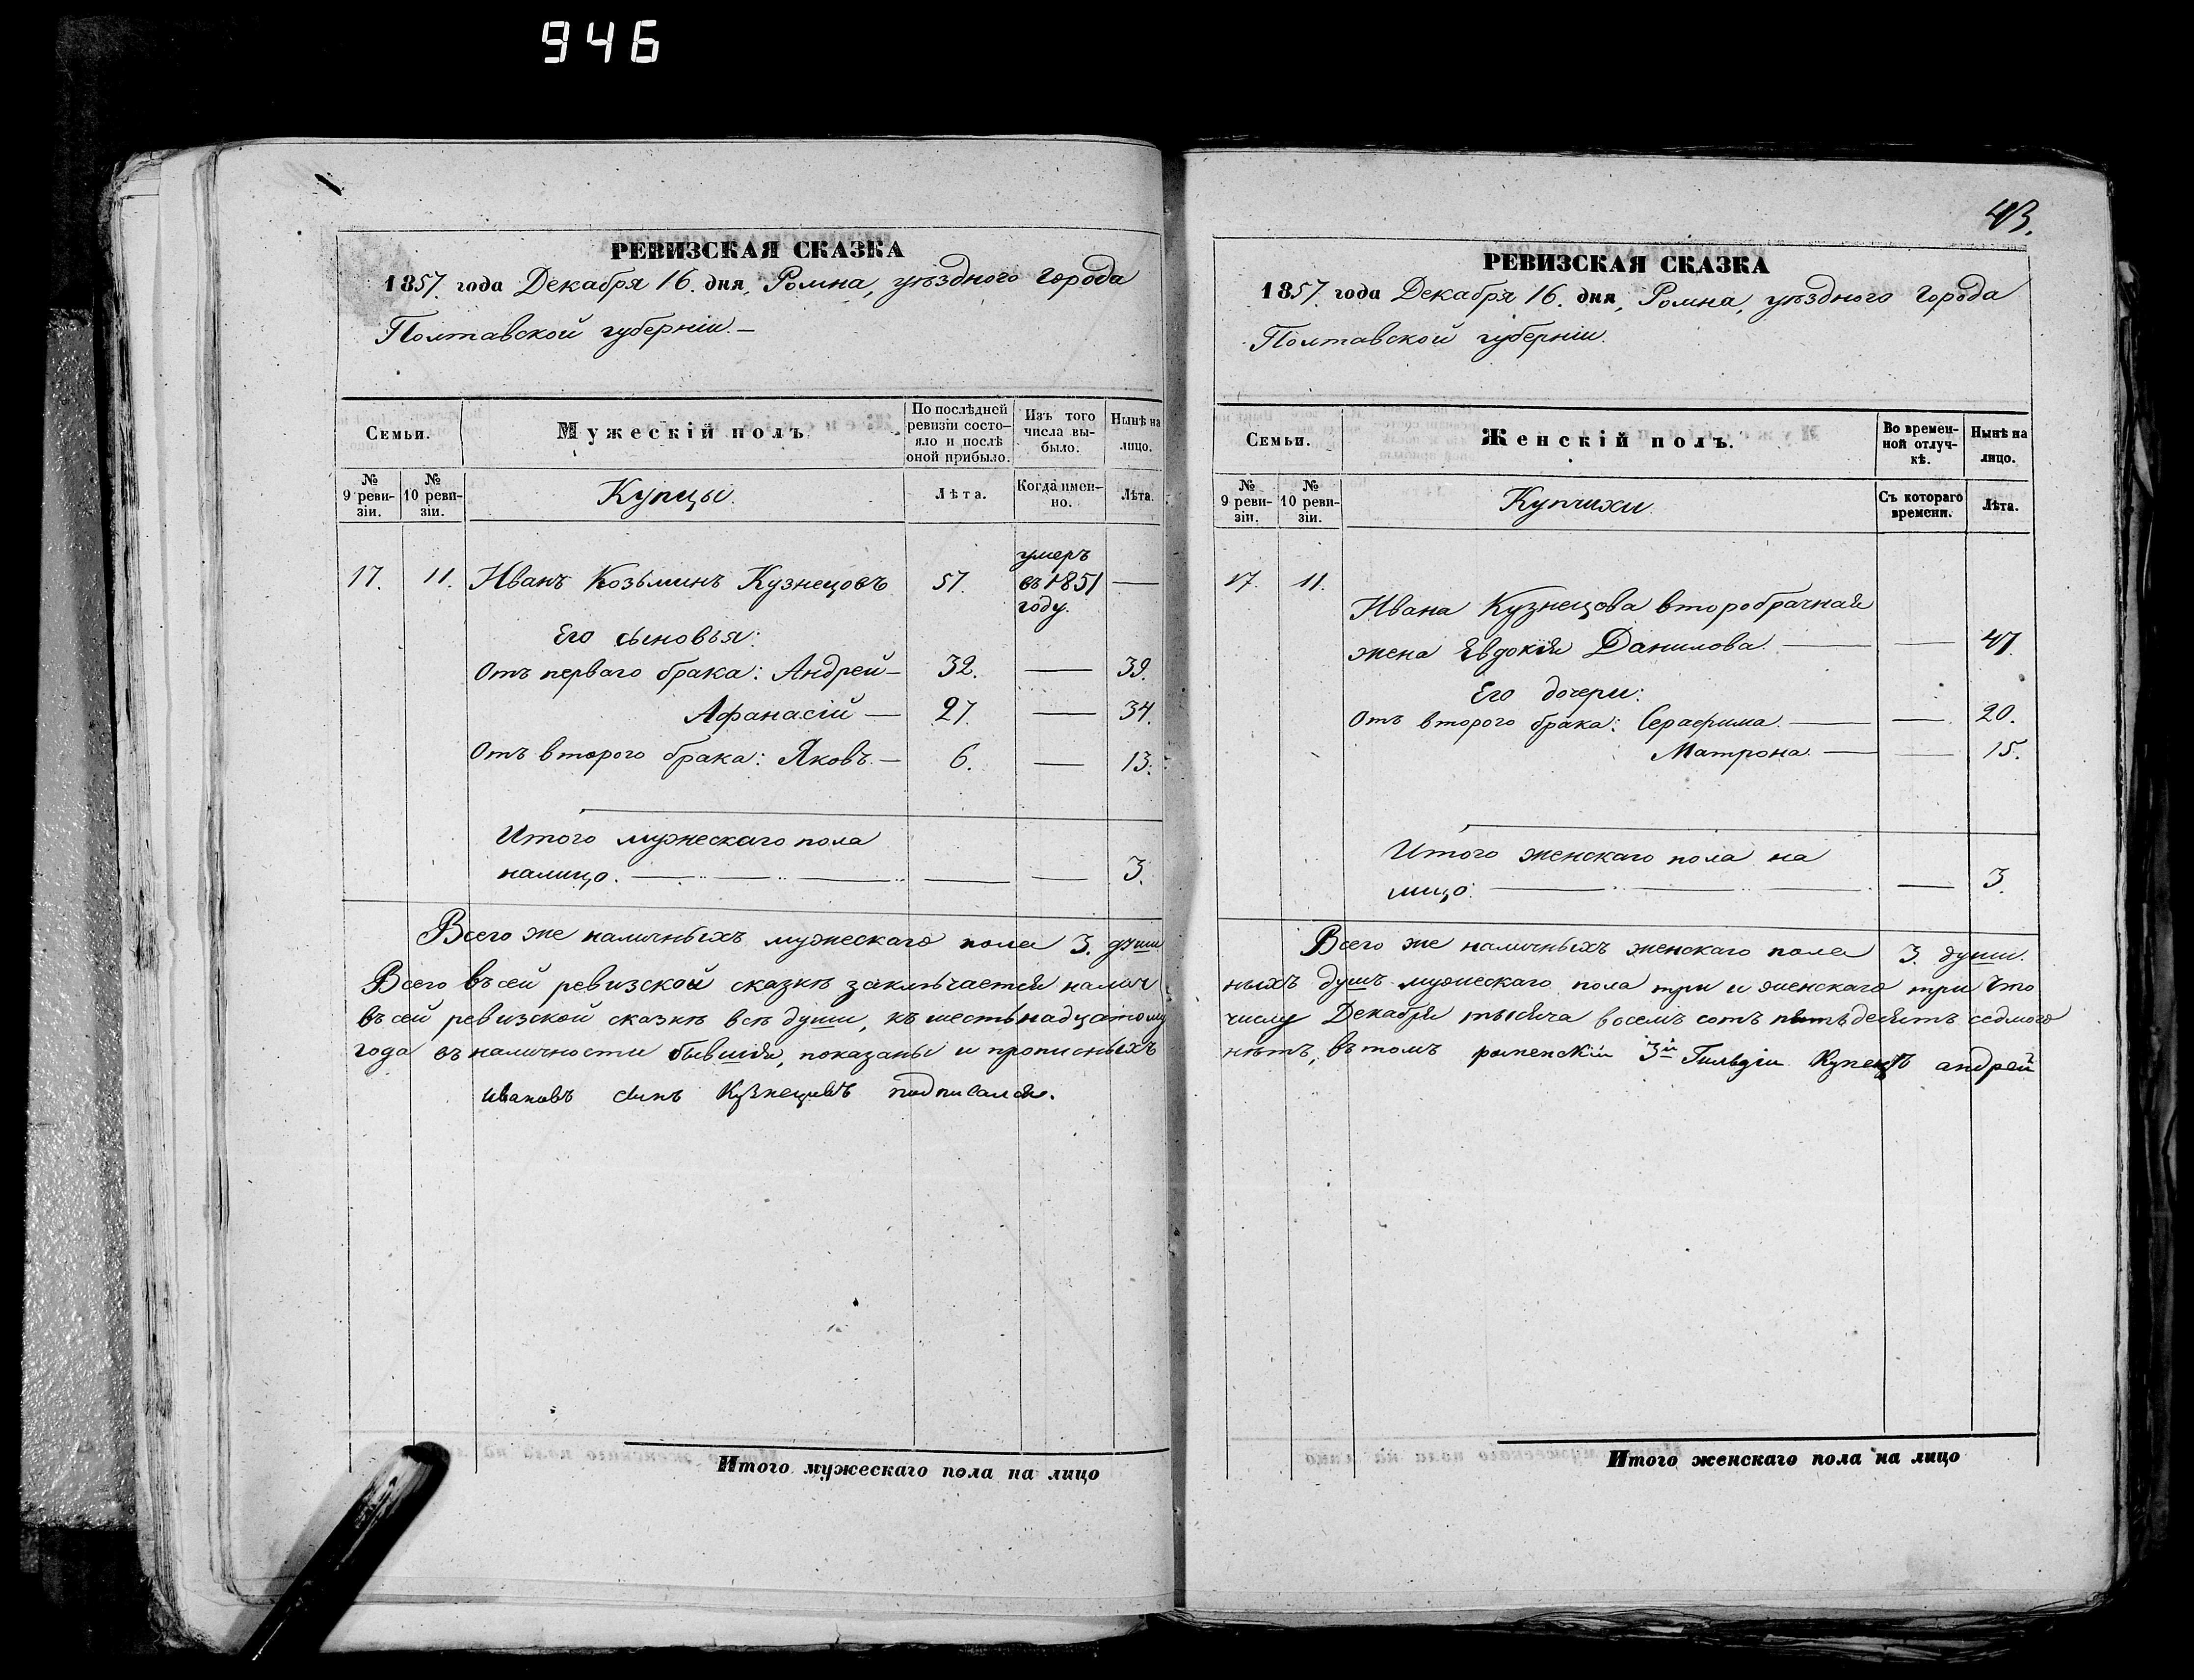 946
РЕВИЗСКАЯ СКАЗКА
1857. года Декабря 16. дня, Ромна, уѣзднаго города
Полтавской губерніи.—
Семьи.
Мужескій полъ
По послѣдней ревизіи состояло и послѣ оной прибыло.
Изъ того числа выбыло.
Нынѣ на лицо.
№ 9 ревизіи.
№ 10 ревизіи.
Купцы.
Лѣта.
Когда именно.
Лѣта.
17. 11. Иванъ Козьминъ Кузнецовъ 51. умеръ въ 1851 году. —
Его сыновья:
Отъ перваго брака: Андрей — 32. — 39.
Афанасій — 27. — 34.
Отъ второго брака: Яковъ. — 6. — 13.
Итого мужескаго пола
налицо. — — 3.
Всего же наличныхъ мужескаго пола 3. души
Всего въ сей ревизской сказкѣ заключается налич
въ сей ревизской сказкѣ всѣ души, къ шестьнадцатому
года въ наличности бывшія, показаны и прописныхъ
ивановъ сынъ Кузнецовъ подписался.
Итого мужескаго пола на лицо
43.
РЕВИЗСКАЯ СКАЗКА
1857. года Декабря 16. дня, Ромна, уѣзднаго города
Полтавской губерніи.
Семьи.
Женскій полъ.
Во временной отлучкѣ.
Нынѣ на лицо.
№ 9 ревизіи.
№ 10 ревизіи.
Купчихи.
Съ котораго времени.
Лѣта.
17. 11.
Ивана Кузнецова второбрачная
жена Евдокія Данилова. — — 47.
Его дочери:
Отъ второго брака: Серафима. — — 20.
Матрона. — — 15.
Итого женскаго пола на
лицо. — — 3.
Всего же наличныхъ женскаго пола 3. души.
ныхъ душъ мужескаго пола три и женскаго три что
числу Декабря тысяча восемь сотъ пятьдесятъ седмого
нѣтъ, въ томъ роменскій 3й Гильдіи Купецъ андрей
Итого женскаго пола на лицо